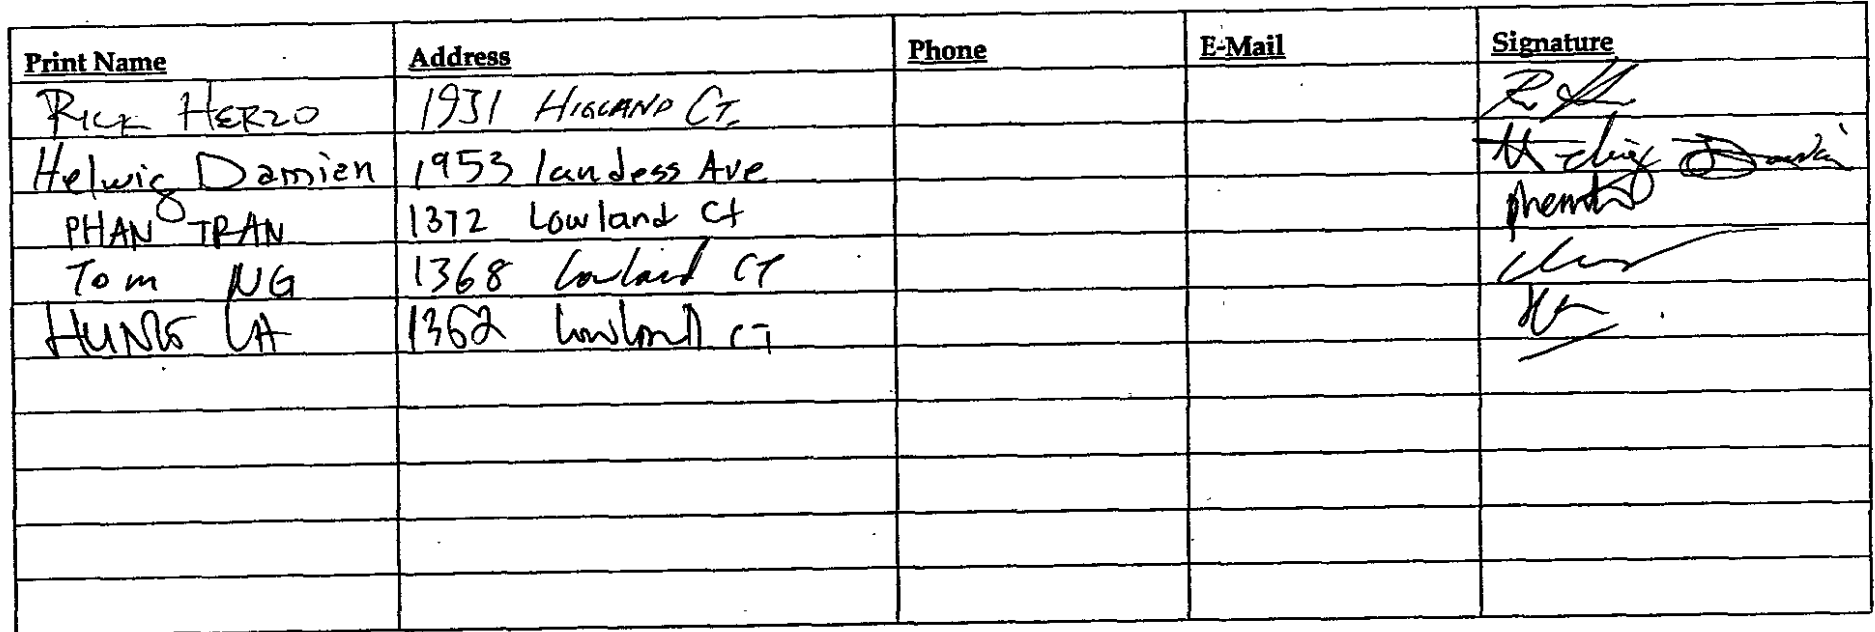 Print Name Address Phone E-Mail Signature
RICK HERZO 1931 HIGLAND CT.
Helwig Damien 1953 landess Ave
PHAN TRAN 1372 Lowland Ct
Tom NG 1368 Lowland CT
HUNG LA 1362 Lowland CT